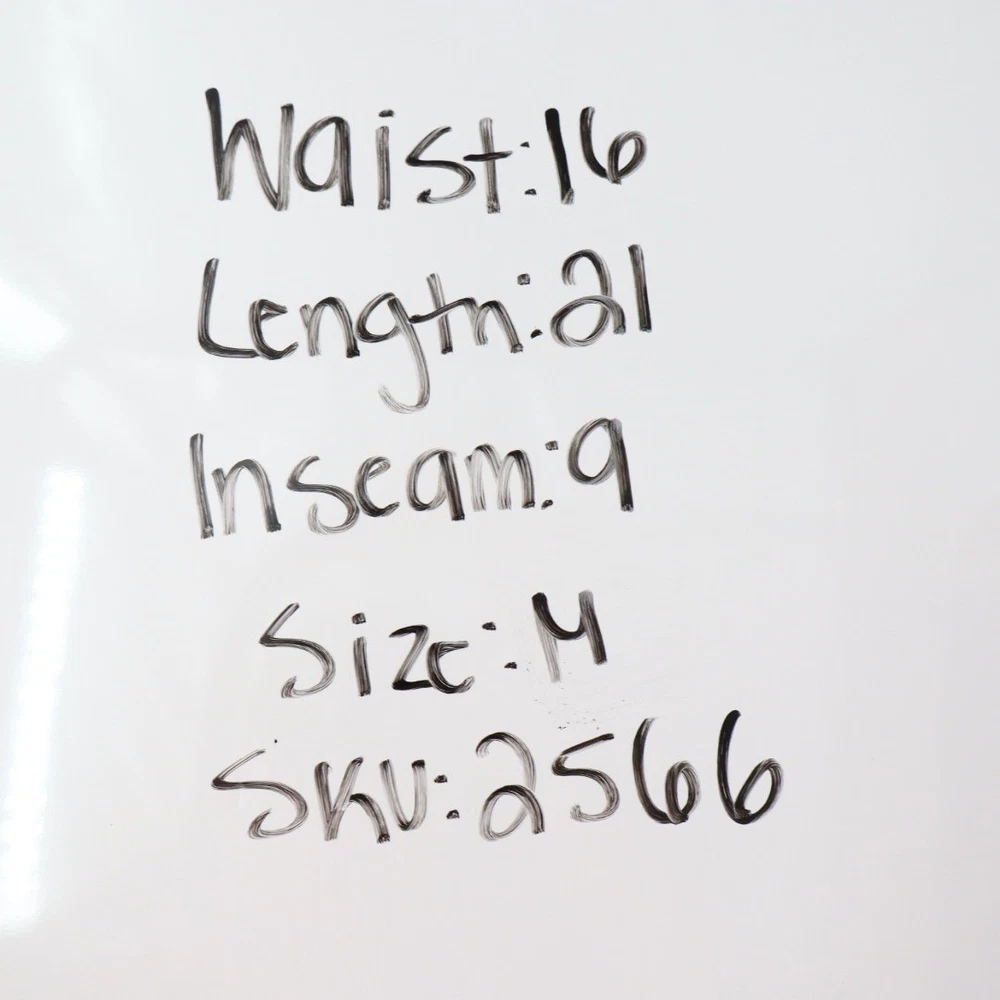 Waist:16
Length:21
Inseam:9
Size:M
SKU:2566